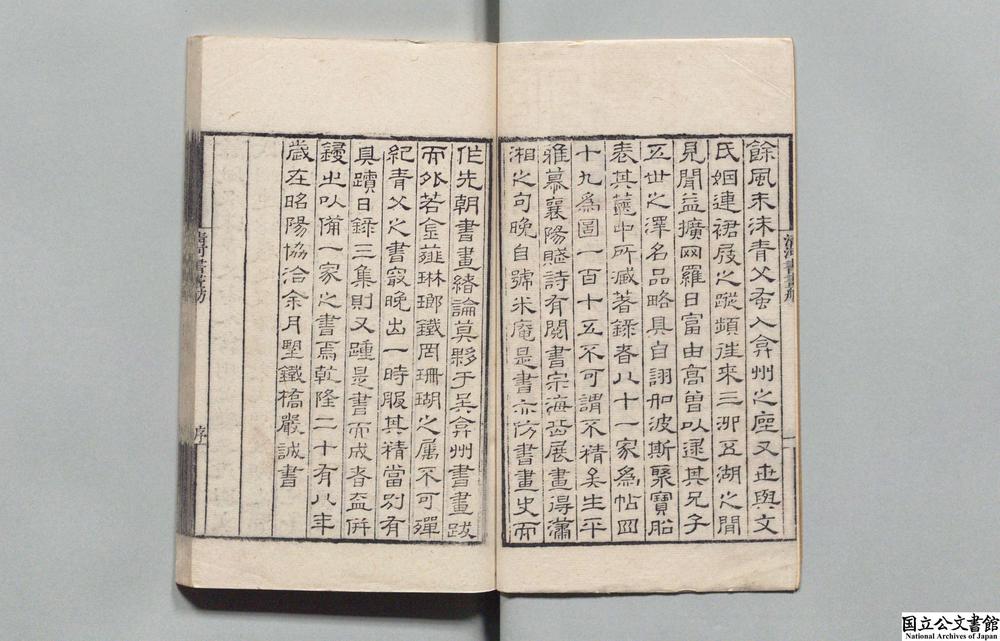 餘風末沫青父蚤入弇州之座又世與文
氏姻連裙屐之蹤頻往來三泖五湖之間
見聞益擴网羅日富由高曽以逮其兄子
五世之澤名品略具自詡如波斯聚寶船
表其篋中所藏著錄者八十一家為帖四
十九為圖一百十五不可謂不精矣生平
雅慕襄陽賸詩有閱書宗海岳展畫得瀟
湘之句晚自號米庵是書亦仿書畫史而
作先朝書畫緒論莫夥于吳弇州書畫跋
而外若金薤琳瑯鐵罔珊瑚之属不可殫
紀青父之書最晚出一時服其精當別有
真蹟日錄三集則又踵是書而成者盍併
鋟出以備一家之書焉乾隆二十有八年
歲在昭陽協洽余月墅鐵橋嚴誠書
清河書畫舫
一
清河書畫舫
序
国立公文書館
National Archives of Japan